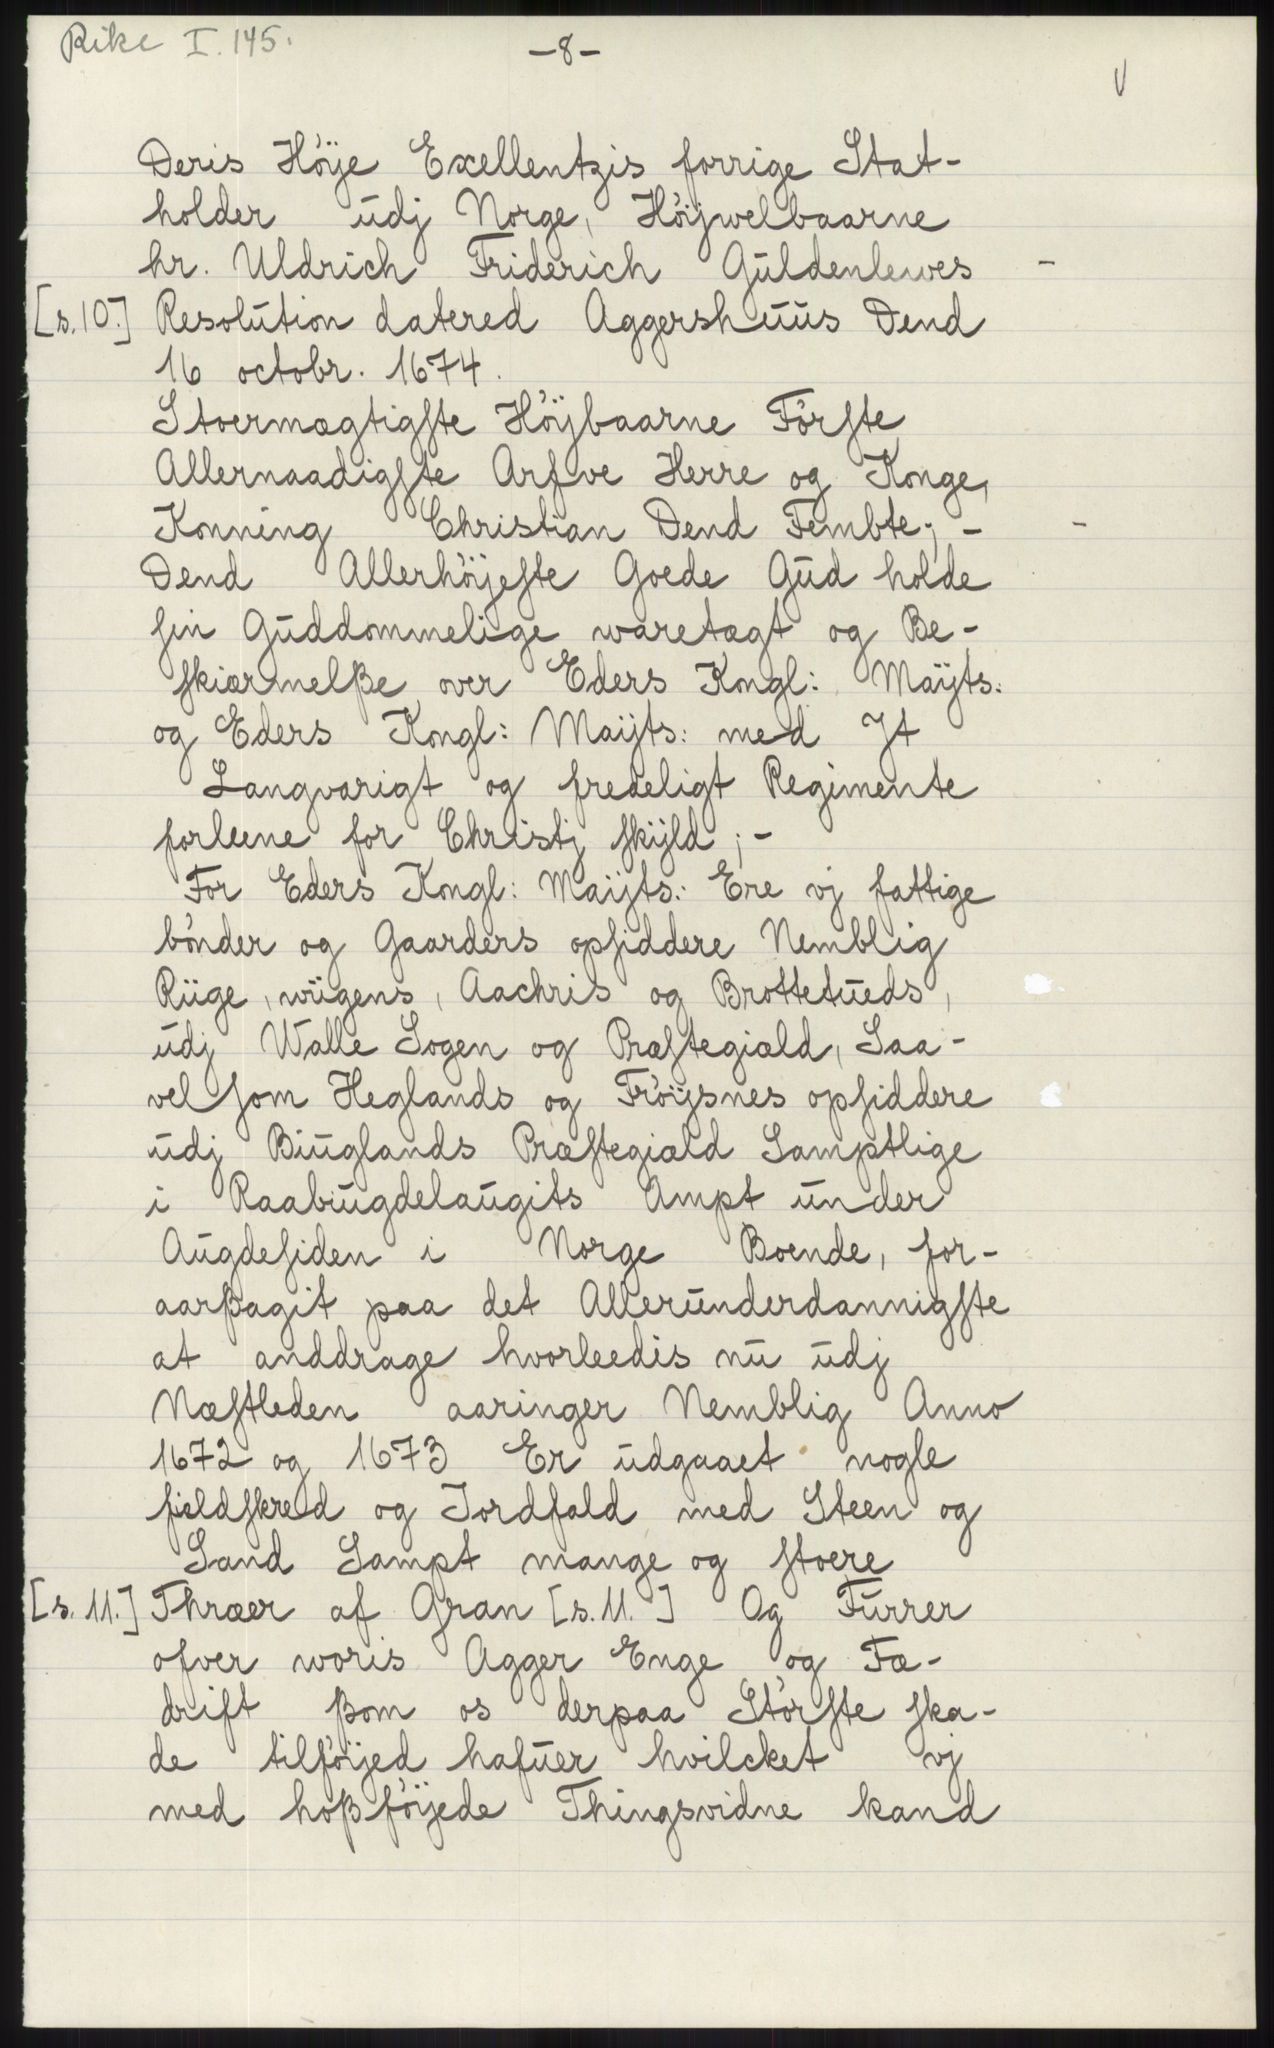 Rike I. 145.
-8-
Deris Höÿe Exellentzis forrige Stat-
holder udj Norge, Höÿwelbaarne
hr. Uldrich Friderich Guldenlewes -
[s.10.] Resolution datered Aggershuus Dend
16 octobr. 1674.
Stoermægtigste Höÿbaarne Förste
Allernaadigste Arfve Herre og Konge,
Konning Christian Dend Fembte; - -
Dend Allerhöÿeste Goede Gud holde
sin Guddommelige waretagt og Be-
skiærmelße over Eders Kongl: Maÿts:
og Eders Kongl: Maÿts: med It
Langvarigt og fredeligt Regimente
forleene for Christj skÿld ; -
For Eders Kongl: Maÿts: Ere vj fattige
bönder og Gaarders opsiddere Nemblig
Riige, wiigens, Aachris og Brottetueds,
udj Walle Sogen og Præstegiæld, Saa-
vel som Heglands og Fröÿsnes opsiddere
udj Biuglands Præstegiæld Samptlige
i Raabugdelaugits Ampt under
Augdesiden i Norge Boende, for-
aarßagit paa det Allerunderdannigste
at anddrage hvorleedis nu udj
Næstleden aaringer Nemblig Anno
1672 og 1673 Er udgaaet nogle
fieldskred og Jordfald med Steen og
Sand Sampt mange og stoere
[s. 11.] Thræer af Gran [s. 11. ] Og Furrer
ofver woris Agger Enge og Fæ-
drift ßom os derpaa Störste ska-
de tilföÿed hafuer hvilcket vj
med hoßföÿede Thingsvidne kand